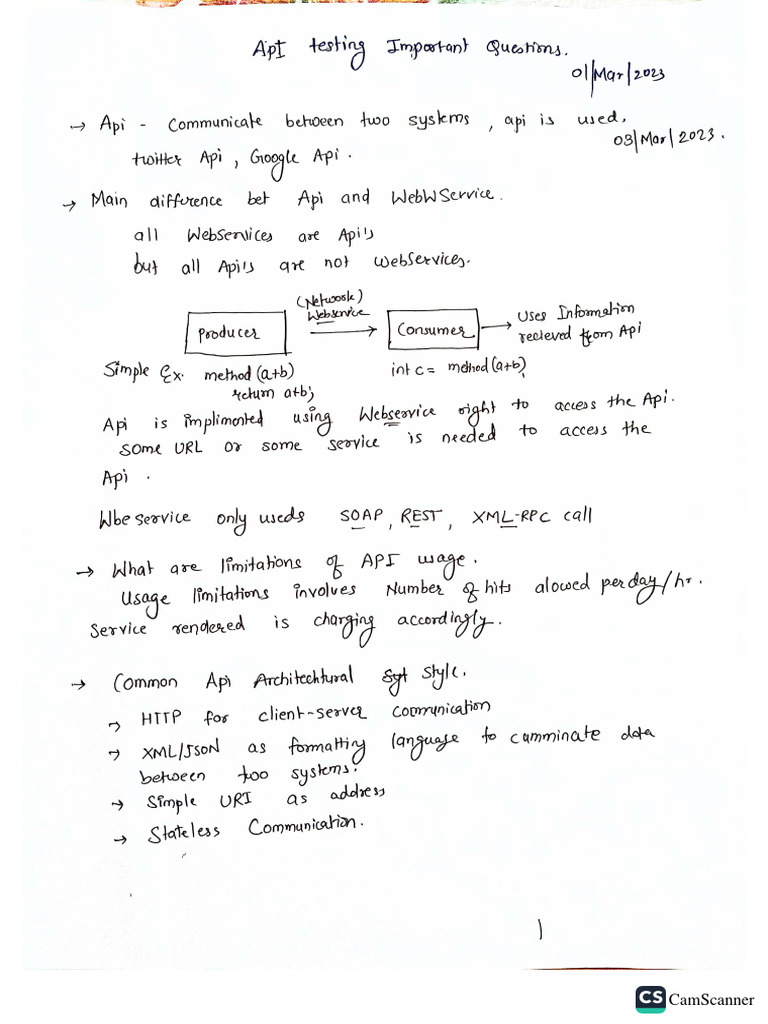 ApI testing Important Questions.
01/Mar/2023
→ Api - Communicate between two systems, api is used.
03/Mar/2023.
twitter Api, Google Api.
→ Main difference bet Api and WebWService.
all Webservices are Api's
but all Api's are not webservices.
(Network)
Webservice
Producer → Consumer → Uses Information
recieved from Api
Simple Ex. method (a+b)
return a+b;
int c = method(a+b);
Api is implimented using Webservice right to access the Api.
some URL or some service is needed to access the
Api.
Wbe service only useds SOAP, REST, XML-RPC call
→ What are limitations of API usage.
Usage limitations involves Number of hits alowed per day/hr.
Service rendered is charging accordingly.
→ Common Api Architechtural Syt Style.
→ HTTP for client-server communication
→ XML/JSON as formatting language to camminate data
between two systems.
→ Simple URI as address
→ Stateless Communication.
1
CS CamScanner